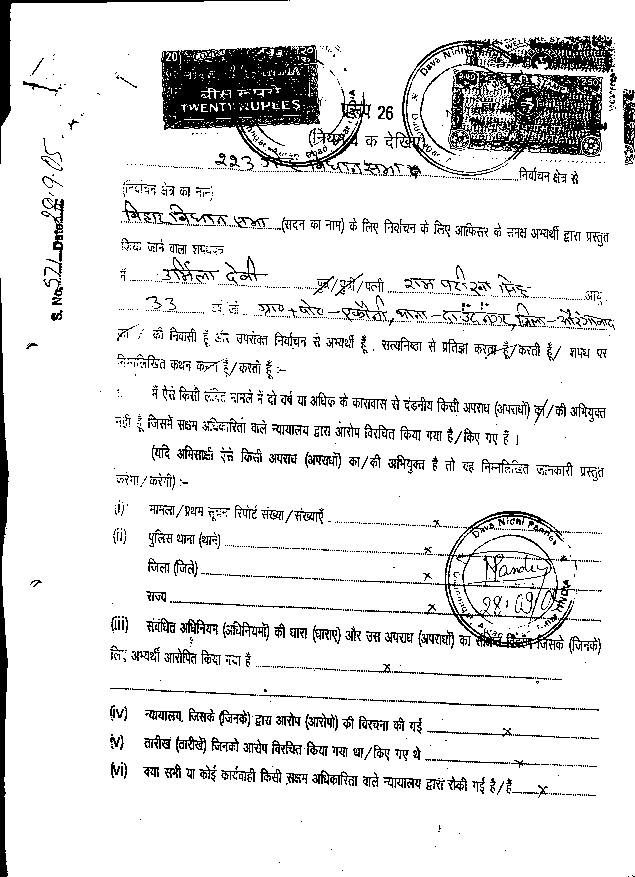 बीस रुपये
TWENTY RUPEES
प्ररूप 26
(नियम क देखिए)
223 विधान सभा निर्वाचन क्षेत्र से
(निर्वाचन क्षेत्र का नाम)
बिहार विधान सभा (सदन का नाम) के लिए निर्वाचन के लिए आफिसर के समक्ष अभ्यर्थी द्वारा प्रस्तुत
किया जाने वाला शपथपत्र
मैं उर्मिला देवी पुत्र/पुत्री/पत्नी राम परीखा सिंह आयु
33 ग्राम+पोस्ट-एकौनी, थाना-दाउदनगर, जिला-औरंगाबाद
का / की निवासी हूँ और उपरोक्त निर्वाचन से अभ्यर्थी हूँ, सत्यनिष्ठा से प्रतिज्ञा करता हूँ/करती हूँ/ शपथ पर
निम्नलिखित कथन करता हूँ/करती हूँ :-
मैं ऐसे किसी लंबित मामले में दो वर्ष या अधिक के कारावास से दंडनीय किसी अपराध (अपराधों) का/की अभियुक्त
नहीं हूँ जिसमें सक्षम अधिकारिता वाले न्यायालय द्वारा आरोप विरचित किया गया है/किए गए हैं ।
(यदि अभिसाक्षी ऐसे किसी अपराध (अपराधों) का/की अभियुक्त है तो वह निम्नलिखित जानकारी प्रस्तुत
करेगा/करेगी) :-
(i) मामला/प्रथम सूचना रिपोर्ट संख्या/संख्याएँ x
(ii) पुलिस थाना (थाने) x
जिला (जिले) x
राज्य x
(iii) संबंधित अधिनियम (अधिनियमों) की धारा (धाराएं) और उस अपराध (अपराधों) का संक्षिप्त विवरण जिसके (जिनके)
लिए अभ्यर्थी आरोपित किया गया है x
(iv) न्यायालय, जिसके (जिनके) द्वारा आरोप (आरोपों) की विरचना की गई x
(v) तारीख (तारीखें) जिनको आरोप विरचित किया गया था/किए गए थे x
(vi) क्या सभी या कोई कार्यवाही किसी सक्षम अधिकारिता वाले न्यायालय द्वारा रोकी गई है/हैं x
S. No. 571 Dated 28.9.05
Daya Nidhi
Daya Nidhi
Pandey
28/09/0
INDIA